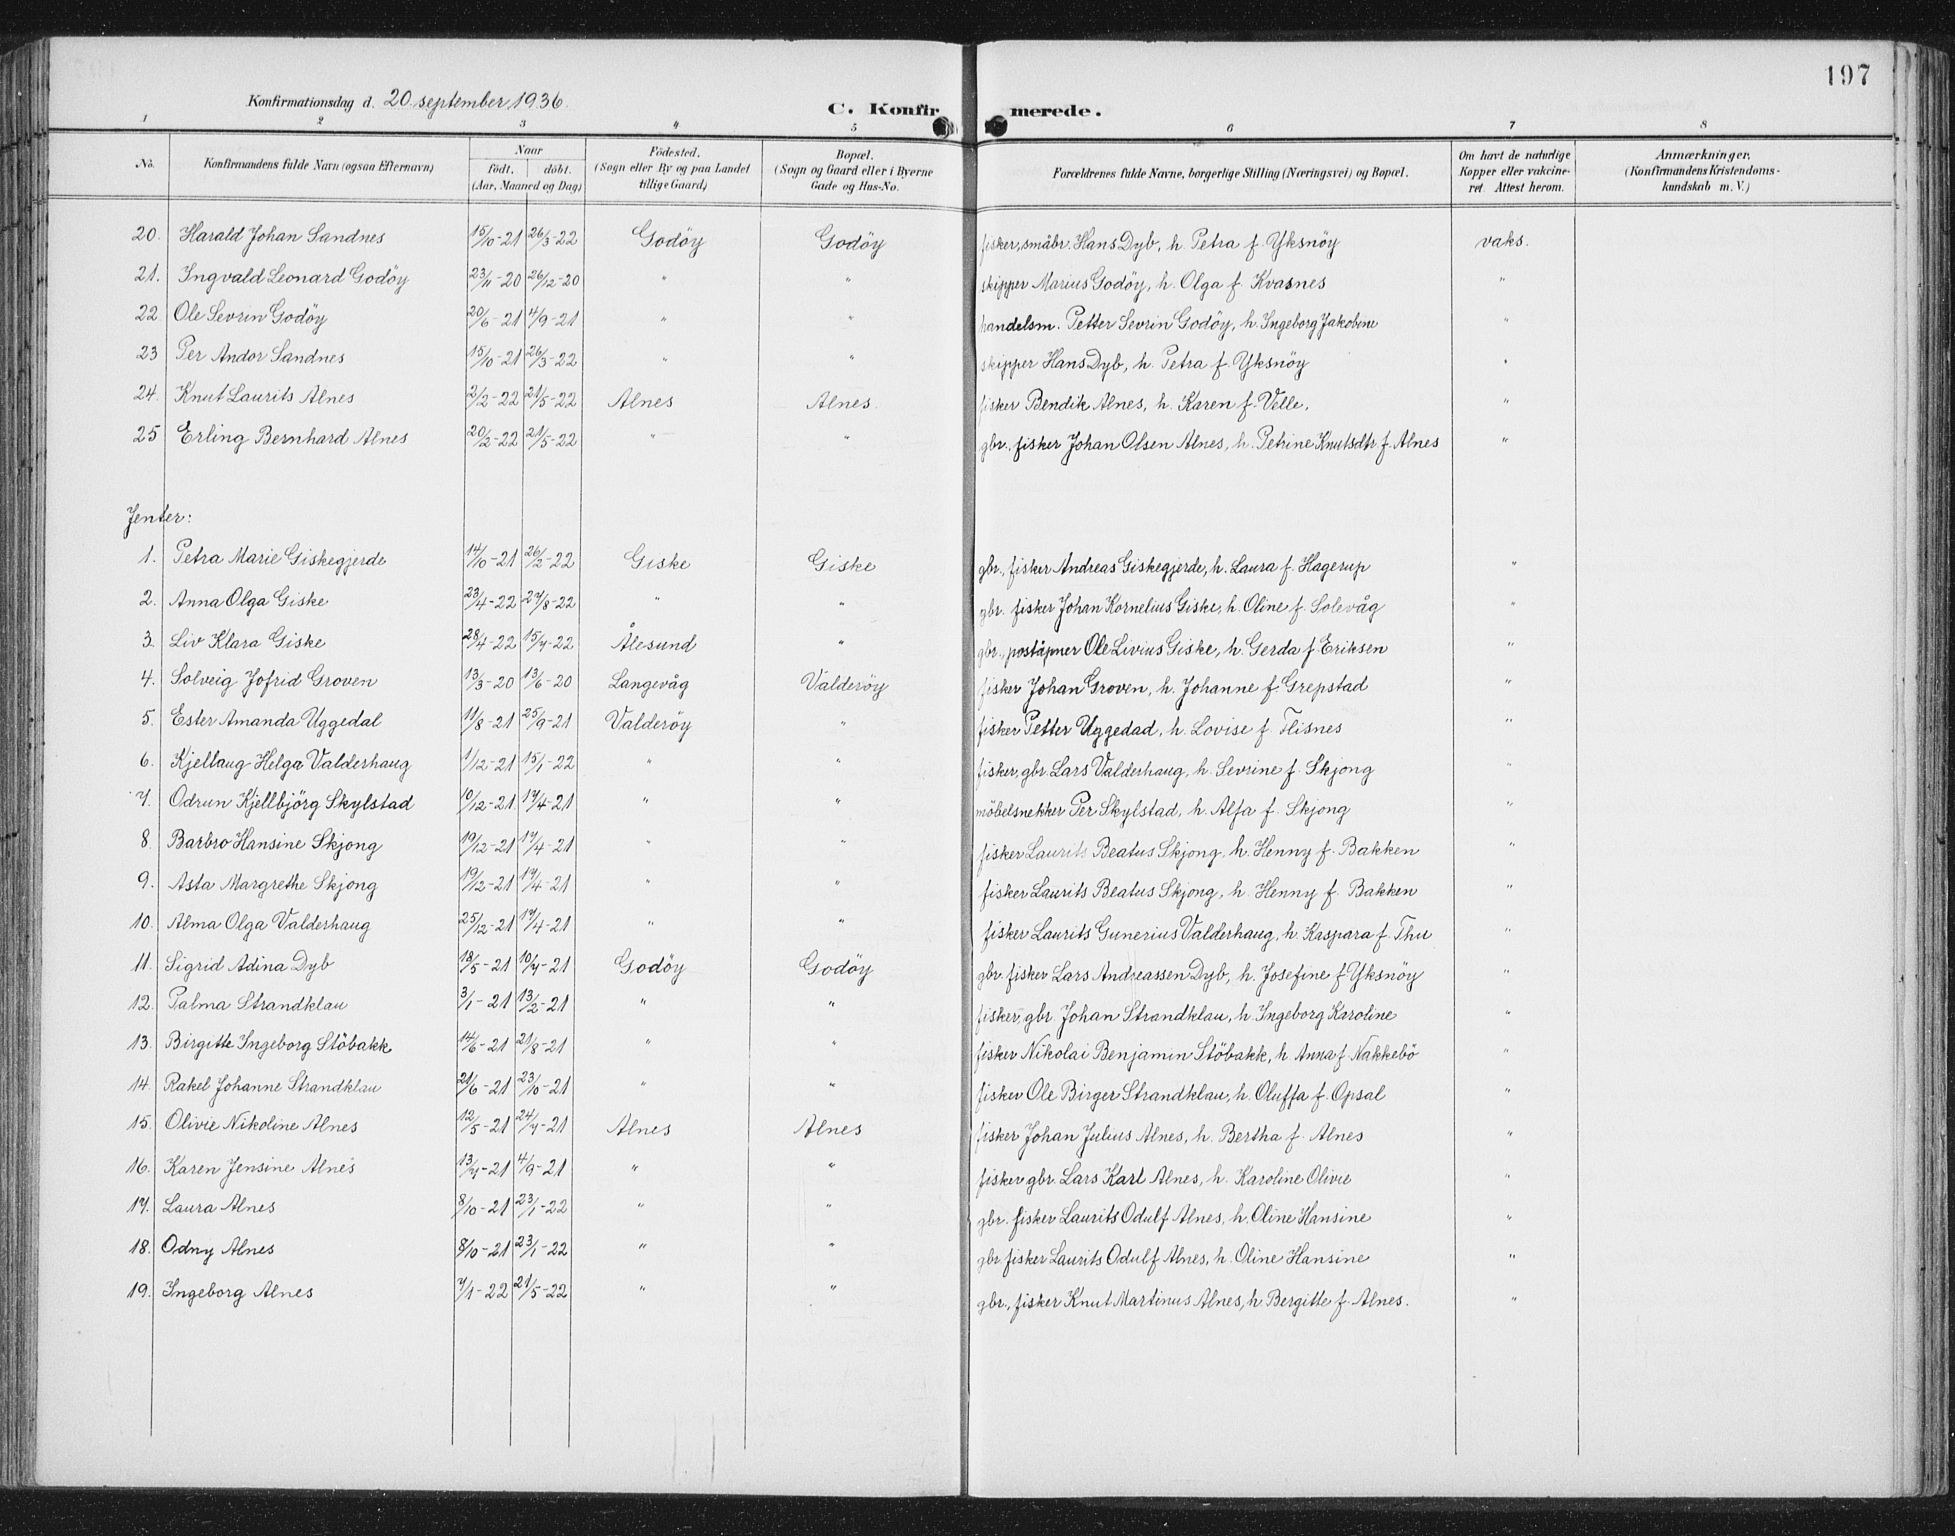 197
Konfirmationsdag d. 20. september 1936.
C. Konfirmerede.
1 2 3 4 5 6 7 8
No. Konfirmandens fulde Navn (ogsaa Efternavn) Naar födt. döbt. (Aar, Maaned og Dag) Födested. (Sogn eller By og paa Landet tillige Gaard) Bopæl. (Sogn og Gaard eller i Byerne Gade og Hus-No. Forældrenes fulde Navne, borgerlige Stilling (Næringsvei) og Bopæl. Om havt de naturlige Kopper eller vakcineret. Attest herom. Anmærkninger, (Konfirmandens Kristendomskundskab m. V.)
20. Harald Johan Sandnes 15/10-21 26/3-22 Godöy Godöy fisker, småbr. Hans Dyb, h. Petra f. Yksnöy vaks.
21. Ingvald Leonard Godöy 23/11-20 26/12-20 " " skipper Marius Godöy, h. Olga f. Kvasnes "
22 Ole Sevrin Godöy 20/6-21 4/9-21 " " handelsm. Petter Sevrin Godöy, h. Ingeborg Jakobine "
23 Per Andor Sandnes 15/10-21 26/3-22 " " skipper Hans Dyb, h. Petra f. Yksnöy "
24. Knut Laurits Alnes 2/2-22 21/5-22 Alnes Alnes. fisker Bendik Alnes, h. Karen f. Velle. "
25 Erling Bernhard Alnes 20/2-22 21/5-22 " " gbr., fisker Johan Olsen Alnes, h. Petrine Knutsdtr f. Alnes "
Jenter:
1. Petra Marie Giskegjerde 14/10-21 26/2-22 Giske Giske gbr., fisker Andreas Giskegjerde, h. Laura f. Hagerup "
2. Anna Olga Giske 23/4-22 27/8-22 " " gbr. fisker Johan Kornelius Giske, h. Oline f. Solevåg "
3. Liv Klara Giske 28/4-22 15/7-22 Ålesund " gbr., poståpner Ole Livius Giske, h. Gerda f. Eriksen "
4. Solveig Jofrid Groven 13/3-20 13/6-20 Langevåg Valderöy fisker Johan Groven, h. Johanne f. Grepstad "
5. Ester Amanda Uggedal 11/8-21 25/9-21 Valderöy " fisker Petter Uggedad, h. Lovise f. Flisnes "
6. Kjellaug Helga Valderhaug 1/12-21 15/1-22 " " fisker, gbr. Lars Valderhaug, h. Sevrine f. Skjong "
7. Odrun Kjellbjörg Skylstad 10/12-21 17/4-21 " " möbelsnekker Per Skylstad, h. Alfa f. Skjong "
8. Barbro Hansine Skjong 19/12-21 17/4-21 " " fisker Laurits Beatus Skjong, h. Henny f. Bakken "
9. Asta Margrethe Skjong 19/12-21 17/4-21 " " fisker Laurits Beatus Skjong, h. Henny f. Bakken "
10. Alma Olga Valderhaug 25/12-21 17/4-21 " " fisker Laurits Gunerius Valderhaug, h. Kaspara f. Thu "
11. Sigrid Adina Dyb 18/5-21 10/7-21 Godöy Godöy gbr. fisker Lars Andreassen Dyb, h. Josefine f. Yksnöy "
12. Palma Strandklau 3/1-21 13/2-21 " " fisker, gbr. Johan Strandklau, h. Ingeborg Karoline "
13. Birgitte Ingeborg Stöbakk 14/6-21 21/8-21 " " fisker Nikolai Benjamin Stöbakk, h. Anna f. Nakkebö "
14. Rakel Johanne Strandklau 21/6-21 23/10-21 " " fisker Ole Birger Strandklau, h. Oluffa f. Opsal "
15. Olivie Nikoline Alnes 12/5-21 24/7-21 Alnes Alnes fisker Johan Julius Alnes, h. Bertha f. Alnes "
16. Karen Jensine Alnes 13/7-21 4/9-21 " " fisker gbr. Lars Karl Alnes, h. Karoline Olivie "
17. Laura Alnes 8/10-21 23/1-22 " " gbr. fisker Laurits Odulf Alnes, h. Oline Hansine "
18. Odny Alnes 8/10-21 23/1-22 " " gbr fisker Laurits Odulf Alnes, h. Oline Hansine "
19. Ingeborg Alnes 7/1-22 21/5-22 " " gbr., fisker Knut Martinus Alnes, h. Bergitte f. Alnes. "